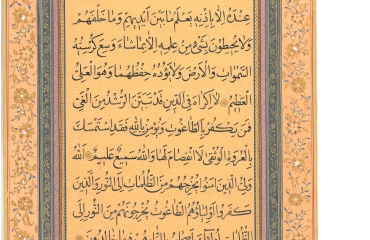 عِنْدَهُ إِلَّا بِإِذْنِهِ يَعْلَمُ مَا بَيْنَ أَيْدِيهِمْ وَمَا خَلْفَهُمْ
وَلَا يُحِيطُونَ بِشَيْءٍ مِنْ عِلْمِهِ إِلَّا بِمَا شَاءَ وَسِعَ كُرْسِيُّهُ
السَّمٰوَاتِ وَالْأَرْضَ وَلَا يَؤُدُهُ حِفْظُهُمَا وَهُوَ الْعَلِيُّ
الْعَظِيمُ لَا إِكْرَاهَ فِي الدِّينِ قَدْ تَبَيَّنَ الرُّشْدُ مِنَ الْغَيِّ
فَمَنْ يَكْفُرْ بِالطَّاغُوتِ وَيُؤْمِنْ بِاللهِ فَقَدِ اسْتَمْسَكَ
بِالْعُرْوَةِ الْوُثْقٰى لَا انْفِصَامَ لَهَا وَاللهُ سَمِيعٌ عَلِيمٌ اللهُ
وَلِيُّ الَّذِينَ آمَنُوا يُخْرِجُهُمْ مِنَ الظُّلُمَاتِ إِلَى النُّورِ وَالَّذِينَ
كَفَرُوا أَوْلِيَاؤُهُمُ الطَّاغُوتُ يُخْرِجُونَهُمْ مِنَ النُّورِ إِلَى